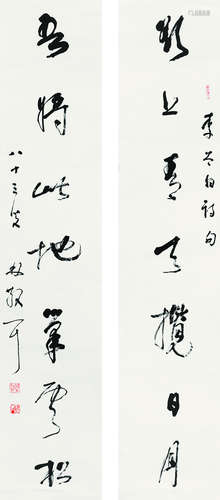 欲上青天攬日月
李太白詩句
吾將此地巢雲松
八十三叟 林散耳